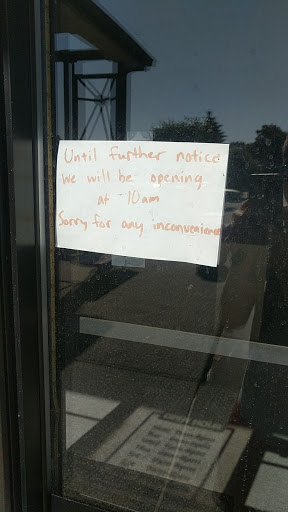 Until further notice
we will be opening
at 10am
Sorry for any inconvenience